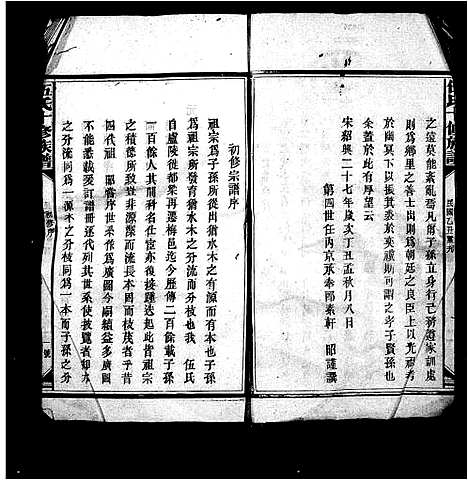 之遠莫能紊亂焉凡爾子孫立身行己務遵家訓處
則爲鄉里之善士出則爲朝廷之良臣上以光祖考
於幽冥下以貽其慈於奕禩斯可謂之孝子賢孫也
余蓋於此有厚望云
宋紹興二十七年歲次丁丑孟秋月八日
第四世任内京承奉郎素軒 昭謹譔
初修宗譜序
祖宗爲子孫所從出猶水木之有源而有本也子孫
爲祖宗所發育猶水木之有分派有分枝也我 伍氏
自廬陵從都梁再遷梅邑迄今歷傳二百餘載子孫
一百餘人其間科名仕宦亦復接踵迭起此皆祖宗
之積德所致豈非源深而流長本固而枝茂者乎昔
四代祖 昭舊序世系作爲廣圖今嗣續益多廣圖
不能悉載爰訂譜冊逐代列其世系使披覽者知力
之分流同爲一源木之分枝同爲一本而子孫之分
伍氏 修族譜
初修序
號
民國乙丑